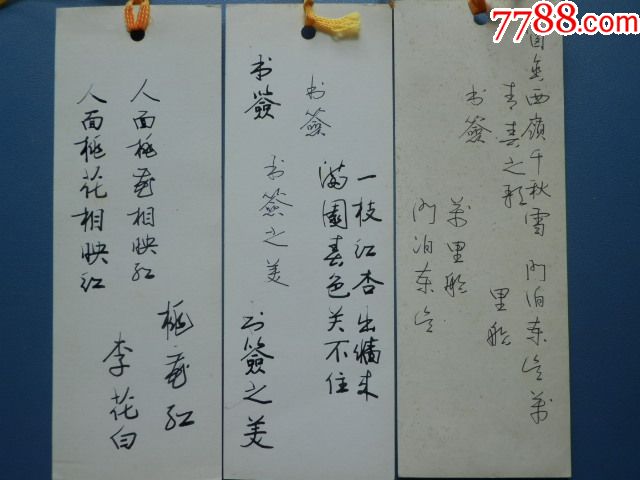 7788.com
人面桃花相映红
人面桃花相映红
桃花红
李花白
书签
书签
书签之美
一枝红杏出墙来
满园春色关不住
书签之美
窗含西嶺千秋雪 门泊东吴万
青春之歌
书签
万里船
门泊东吴
里船